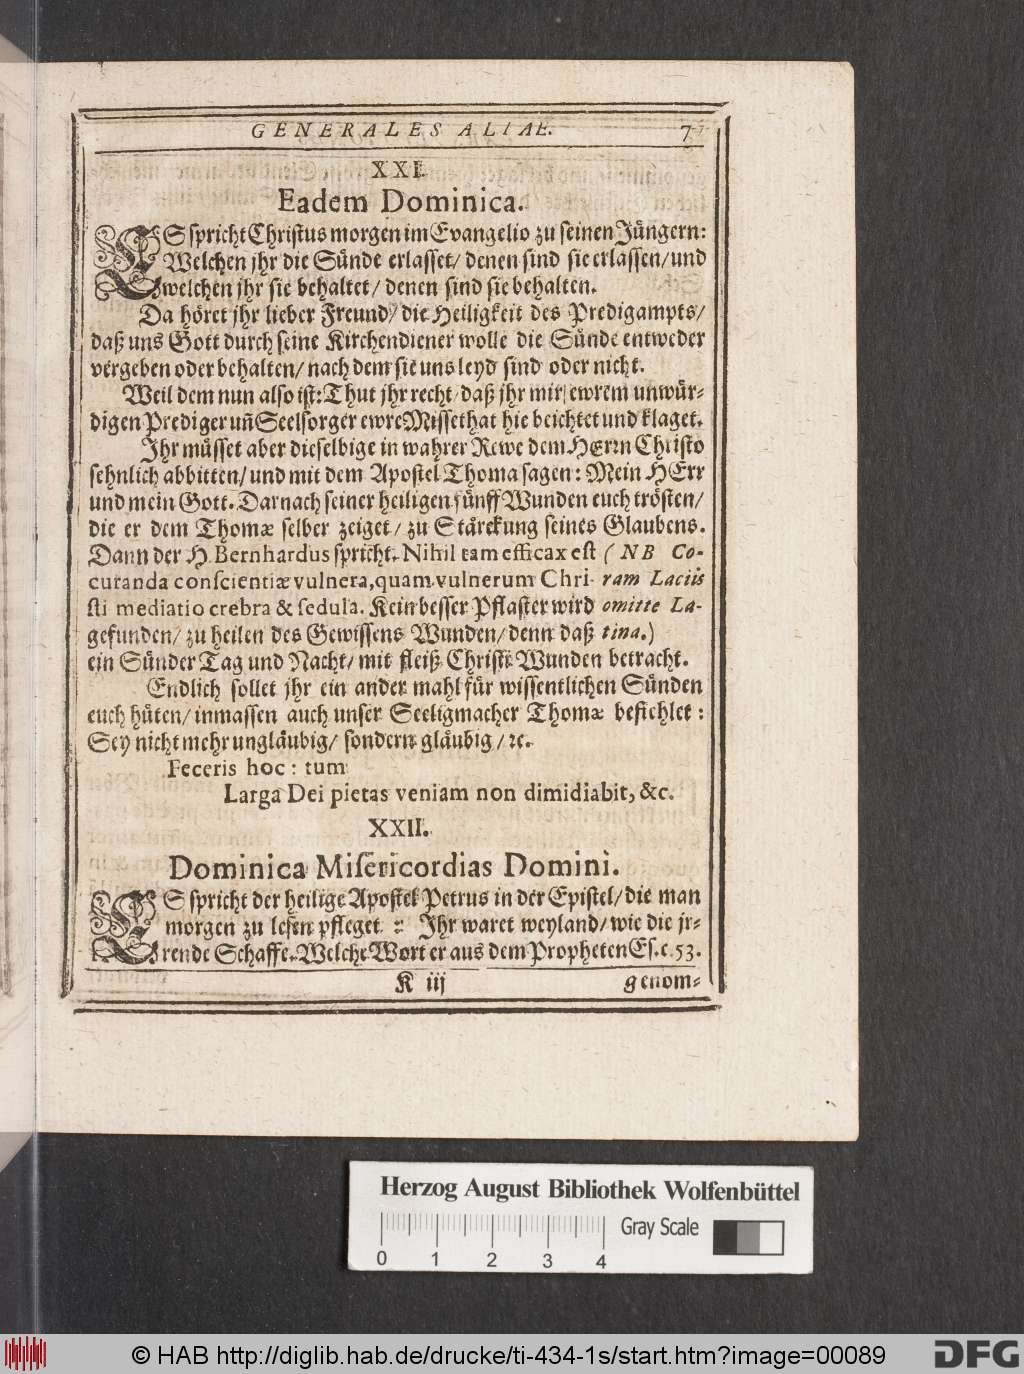 GENERALES ALIAE.
XXI.
Eadem Dominica.
ES spricht Christus morgen im Evangelio zu seinen Jüngern:
Welchen jhr die Sünde erlasset/ denen sind sie erlassen/ und
welchen jhr sie behaltet/ denen sind sie behalten.
Da höret jhr lieber Freund/ die Heiligkeit des Predigampts/
daß uns Gott durch seine Kirchendiener wolle die Sünde entweder
vergeben oder behalten/ nach dem sie uns leyd sind oder nicht.
Weil dem nun also ist: Thut jhr recht/ daß jhr mir/ ewrem unwür-
digen Prediger uñ Seelsorger ewre Missethat hie beichtet und klaget.
Jhr müsset aber dieselbige in wahrer Rewe dem HErrn Christo
sehnlich abbitten/ und mit dem Apostel Thoma sagen: Mein HErr
und mein Gott. Darnach seiner heiligen fünff Wunden euch trösten/
die er dem Thomæ selber zeiget/ zu Stärckung seines Glaubens.
Dann der H. Bernhardus spricht. Nihil tam efficax est (NB Co-
curanda conscientiæ vulnera, quam vulnerum Chri- ram Laciis
sti mediatio crebra & sedula. Kein besser Pflaster wird omitte La-
gefunden/ zu heilen des Gewissens Wunden/ denn daß tina.)
ein Sünder Tag und Nacht/ mit fleiß Christi Wunden betracht.
Endlich sollet jhr ein ander mahl für wissentlichen Sünden
euch hüten/ inmassen auch unser Seeligmacher Thomæ befiehlet:
Sey nicht mehr ungläubig/ sondern gläubig/ ꝛc.
Feceris hoc: tum
Larga Dei pietas veniam non dimidiabit, &c.
XXII.
Dominica Misericordias Domini.
ES spricht der heilige Apostel Petrus in der Epistel/ die man
morgen zu lesen pfleget: Jhr waret weyland/ wie die jr-
rende Schaffe. Welche Wort er aus dem Propheten Es. c. 53.
K iij genom-
Herzog August Bibliothek Wolfenbüttel
Gray Scale
0 1 2 3 4
© HAB http://diglib.hab.de/drucke/ti-434-1s/start.htm?image=00089
DFG